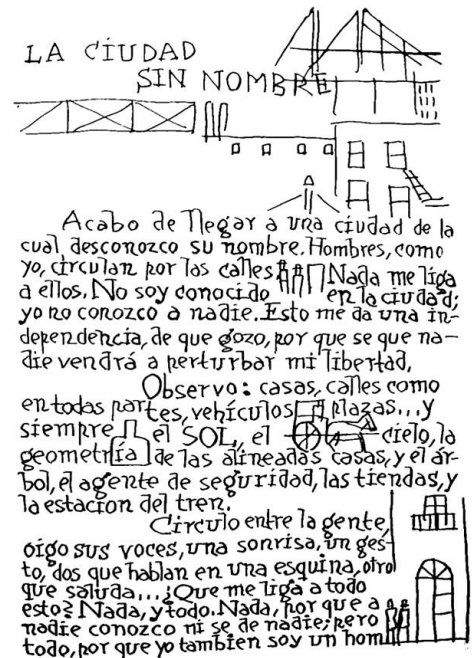 LA CIUDAD
SIN NOMBRE
Acabo de llegar a una ciudad de la
cual desconozco su nombre. Hombres, como
yo, circulan por las calles Nada me liga
a ellos. No soy conocido en la ciudad;
yo no conozco a nadie. Esto me da una in-
dependencia, de que gozo, por que se que na-
die vendrá a perturbar mi libertad,
Observo: casas, calles como
en todas partes, vehículos plazas... y
siempre el SOL, el cielo, la
geometría de las alineadas casas, y el ár-
bol, el agente de seguridad, las tiendas, y
la estacion del tren.
Circulo entre la gente,
oigo sus voces, una sonrisa, un ges-
to, dos que hablan en una esquina, otro
que saluda... ¿Que me liga a todo
esto? Nada, y todo. Nada, por que a
nadie conozco ni se de nadie; pero
todo, por que yo tambien soy un hom